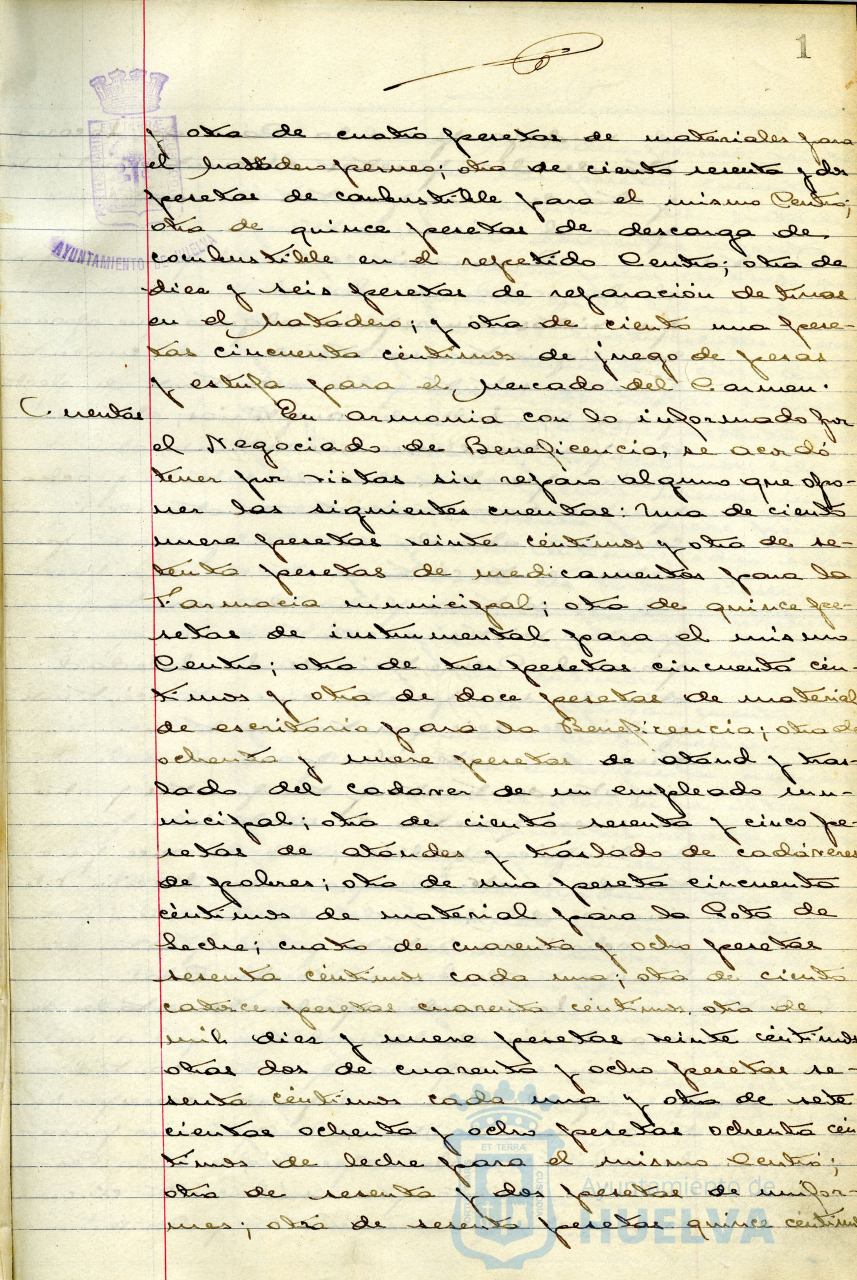 1
y otra de cuatro pesetas de materiales para
el matadero perneo; otra de ciento sesenta y dos
pesetas de combustible para el mismo Centro;
otra de quince pesetas de descarga de
combustible en el repetido Centro; otra de
diez y seis pesetas de reparación de tinas
en el matadero; y otra de ciento una pese-
tas cincuenta céntimos de juego de pesas
y estufa para el mercado del Carmen.
Cuentas En armonia con lo informado por
el Negociado de Beneficencia, se acordó
tener por vistas sin reparo alguno que opo-
ner las siguientes cuentas: Una de ciento
nueve pesetas veinte céntimos y otra de se-
tenta pesetas de medicamentos para la
Farmacia municipal; otra de quince pe-
setas de instrumental para el mismo
Centro; otra de tres pesetas cincuenta cén-
timos y otra de doce pesetas de material
de escritorio para la Beneficencia; otra de
ochenta y nueve pesetas de ataud y tras-
lado del cadaver de un empleado mu-
nicipal; otra de ciento sesenta y cinco pe-
setas de ataudes y traslado de cadáveres
de pobres; otra de una peseta cincuenta
céntimos de material para la Gota de
Leche; cuatro de cuarenta y ocho pesetas
sesenta céntimos cada una; otra de ciento
catorce pesetas cuarenta céntimos, otra de
mil diez y nueve pesetas veinte céntimos
otras dos de cuarenta y ocho pesetas se-
senta céntimos cada una y otra de sete
cientas ochenta y ocho pesetas ochenta cén
timos de leche para el mismo Centro;
otra de sesenta y dos pesetas de unifor-
mes; otra de sesenta pesetas quince céntimos
AYUNTAMIENTO DE HUELVA
ET TERRÆ
Ayuntamiento de
HUELVA